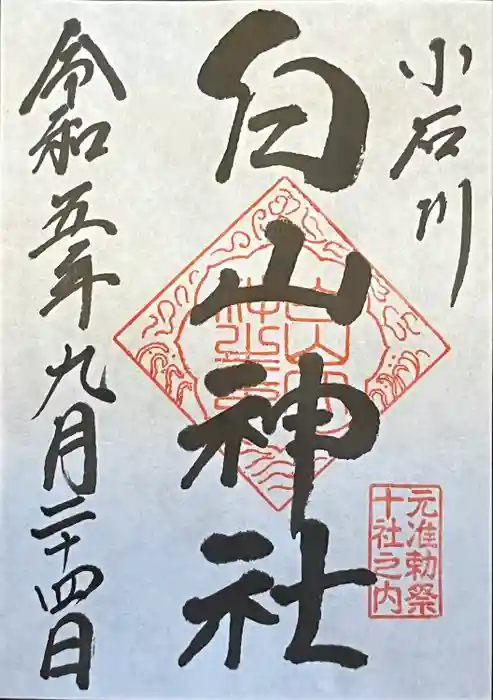 小石川
白山神社
令和五年九月二十四日
元准勅祭
十社之内